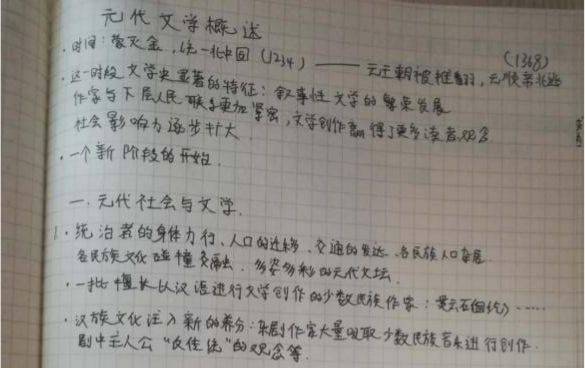 元代文学概述
·时间：蒙灭金，统一北中国（1234）——元王朝被推翻，元顺帝北逃（1368）
·这一时段文学史显著的特征：叙事性文学的繁荣发展
作家与下层人民联系更加紧密，文学创作赢得了更多读者、观众
社会影响力逐步扩大
·一个新阶段的开始.
一.元代社会与文学.
1.统治者的身体力行、人口的迁移、交通的发达、各民族人口杂居
各民族文化碰撞交融，多姿多彩的元代文坛.
·一批擅长以汉语进行文学创作的少数民族作家：贯云石
·汉族文化注入新的养分：杂剧作家大量吸取少数民族音乐进行创作.
剧中主人公"的观念等.